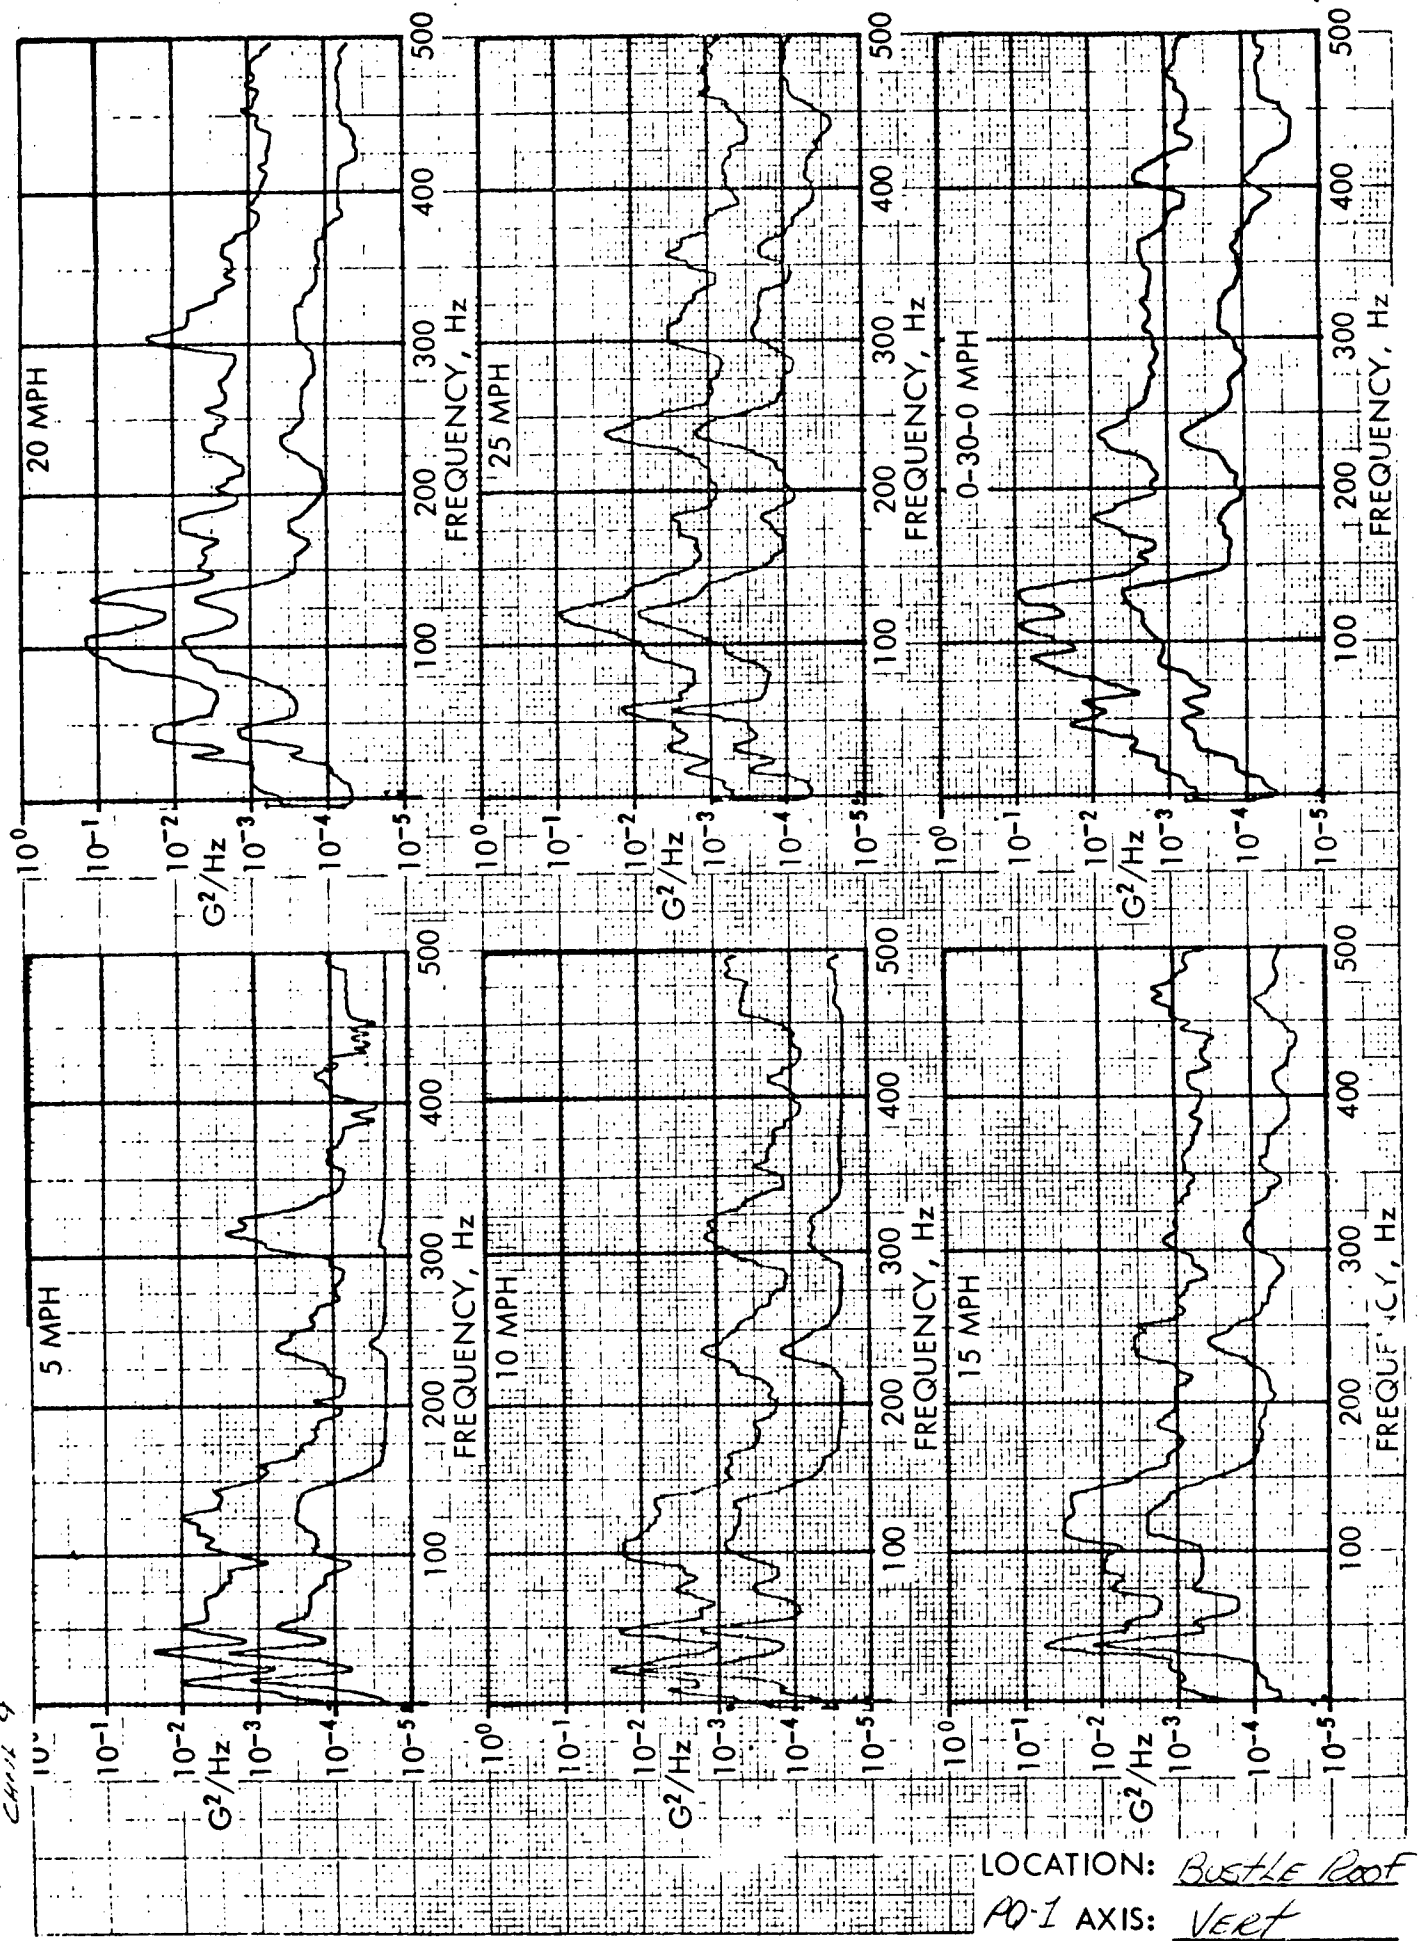 CHNL 9
5 MPH
G²/Hz
10⁻¹
10⁻²
10⁻³
10⁻⁴
10⁻⁵
100
200
300
400
500
FREQUENCY, Hz
20 MPH
G²/Hz
10⁰
10⁻¹
10⁻²
10⁻³
10⁻⁴
10⁻⁵
100
200
300
400
500
FREQUENCY, Hz
10 MPH
G²/Hz
10⁰
10⁻¹
10⁻²
10⁻³
10⁻⁴
10⁻⁵
100
200
300
400
500
FREQUENCY, Hz
25 MPH
G²/Hz
10⁰
10⁻¹
10⁻²
10⁻³
10⁻⁴
10⁻⁵
100
200
300
400
500
FREQUENCY, Hz
15 MPH
G²/Hz
10⁰
10⁻¹
10⁻²
10⁻³
10⁻⁴
10⁻⁵
100
200
300
400
500
Hz
0-30-0 MPH
G²/Hz
10⁰
10⁻¹
10⁻²
10⁻³
10⁻⁴
10⁻⁵
100
200
300
400
500
FREQUENCY, Hz
LOCATION: BUSTLE ROOF
PQ-1 AXIS: VERT